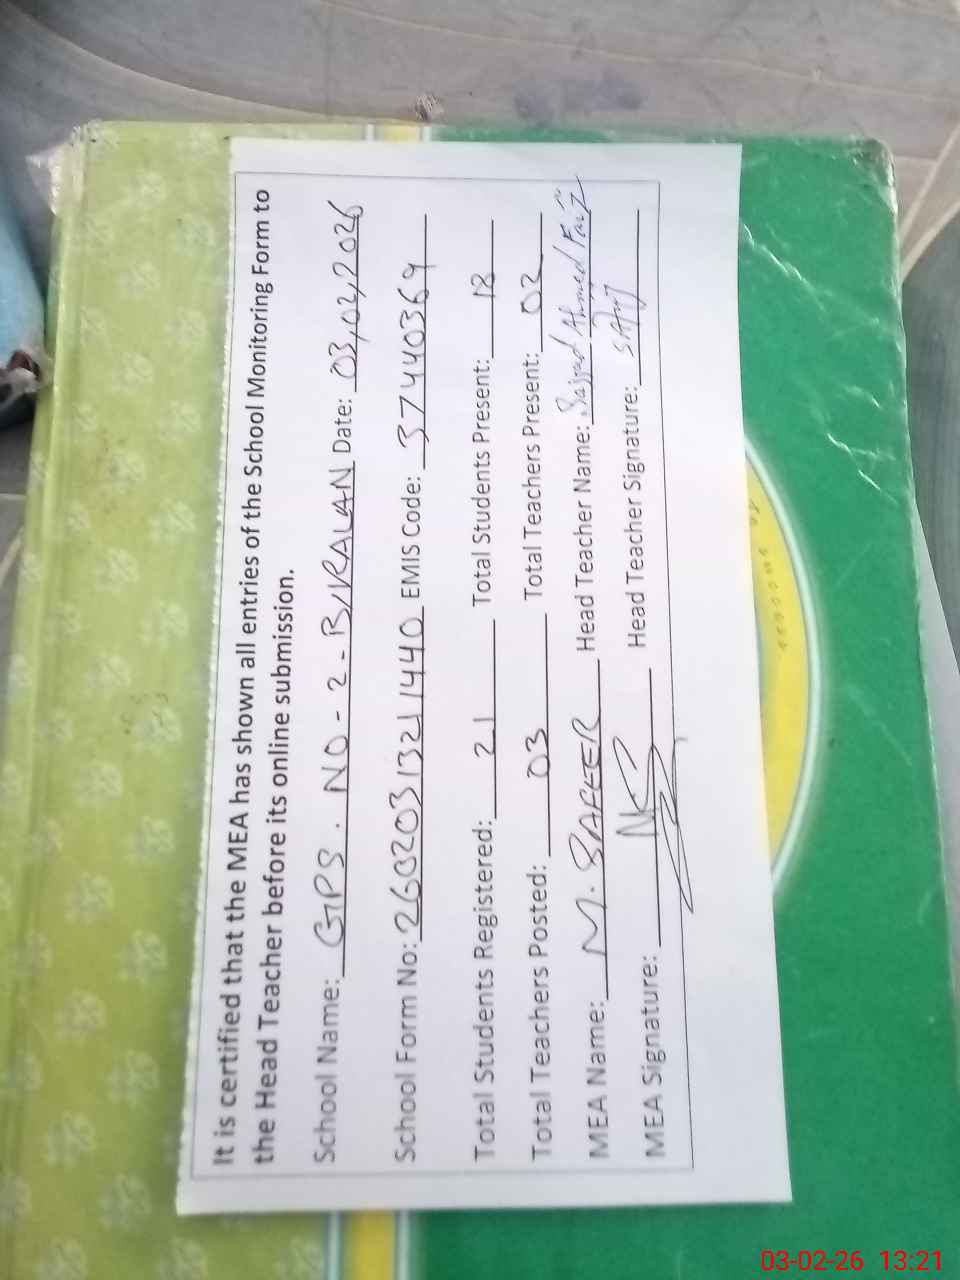 It is certified that the MEA has shown all entries of the School Monitoring Form to
the Head Teacher before its online submission.
School Name: GPS. NO-2-B/KALAN Date: 03,02,2026
School Form No: 2602031321440 EMIS Code: 37440369
Total Students Registered: 21 Total Students Present: 18
Total Teachers Posted: 03 Total Teachers Present: 02
MEA Name: M. SAFEER Head Teacher Name: Sajjad Ahmed Faiz
MEA Signature: Head Teacher Signature:
03-02-26 13:21